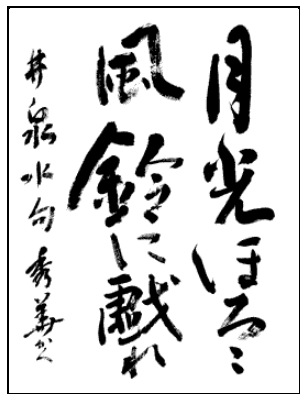 月光ほろ〻
風鈴に戯れ
井泉水句 秀華かく